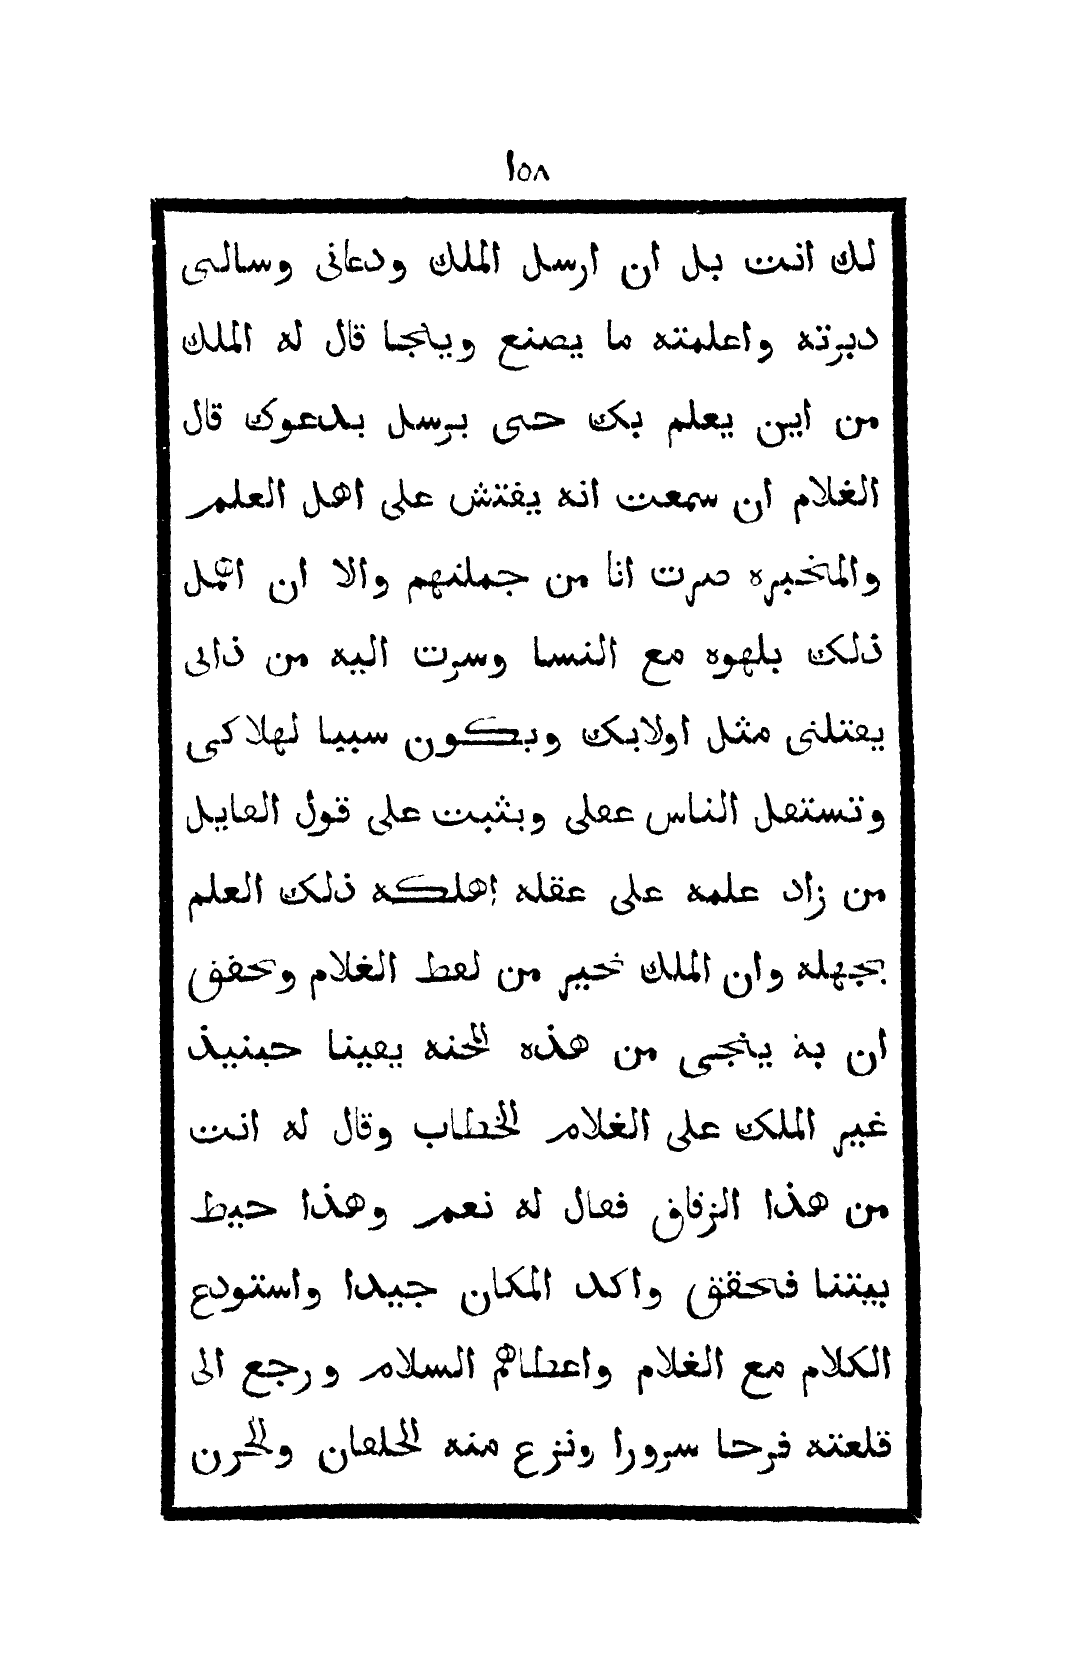 ١٥٨
لك انت بل ان ارسل الملك ودعانى وسالنى
دبرته واعلمته ما يصنع وينجا قال له الملك
من اين يعلم بك حتى يرسل يدعوك قال
الغلام ان سمعت انه يفتش على اهل العلم
والمخبره صرت انا من جملتهم والا ان اتمهل
ذلك بلهوه مع النسا وسرت اليه من ذاتى
يقتلنى مثل اولايك ويكون سببا لهلاكى
وتستقل الناس عقلى ويثبت على قول القايل
من زاد علمه على عقله إهلكه ذلك العلم
بجهله وان الملك تحير من لفظ الغلام وتحقق
ان به ينجى من هذه المحنه يقينا حينيذ
غير الملك على الغلام الخطاب وقال له انت
من هذا الزقاق فقال له نعم وهذا حيط
بيتنا فتحقق واكد المكان جيدا واستودع
الكلام مع الغلام واعطاهم السلام ورجع الى
قلعته فرحا سرورا ونزع منه الخلقان والحزن